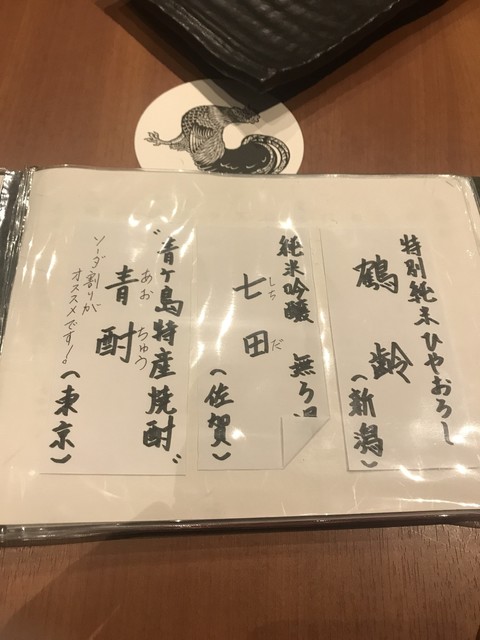 特別純米ひやおろし
鶴齢
(新潟)
純米吟醸 無ろ
七田
しち だ
(佐賀)
"青ヶ島特産焼酎"
青酎
あお ちゅう
(東京)
ソーダ割りが
オススメです!